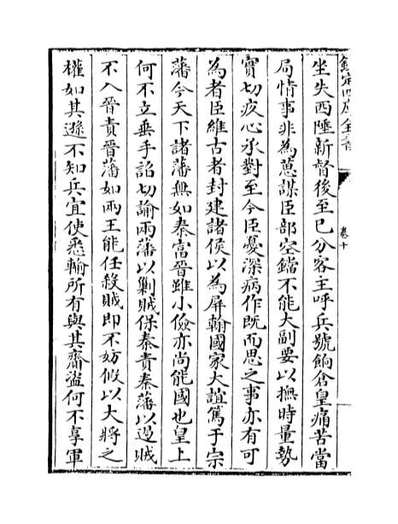 欽定四庫全書
卷十
坐失西陲新督後至已分客主呼兵號餉倉皇痛苦當
局情事非為蒽謀臣部空鐺不能大副要以撫時量勢
實切疚心承對至今臣憂深病作既而思之事亦有可
為者臣維古者封建諸侯以為屏翰國家大誼篤于宗
藩今天下諸藩無如秦富晉雖小儉亦尚能國也皇上
何不立垂手詔切諭兩藩以剿賊保秦責秦藩以遏賊
不入晉責晉藩如兩王能任殺賊即不妨假以大將之
權如其遜不知兵宜使悉輸所有與其齎盜何不享軍